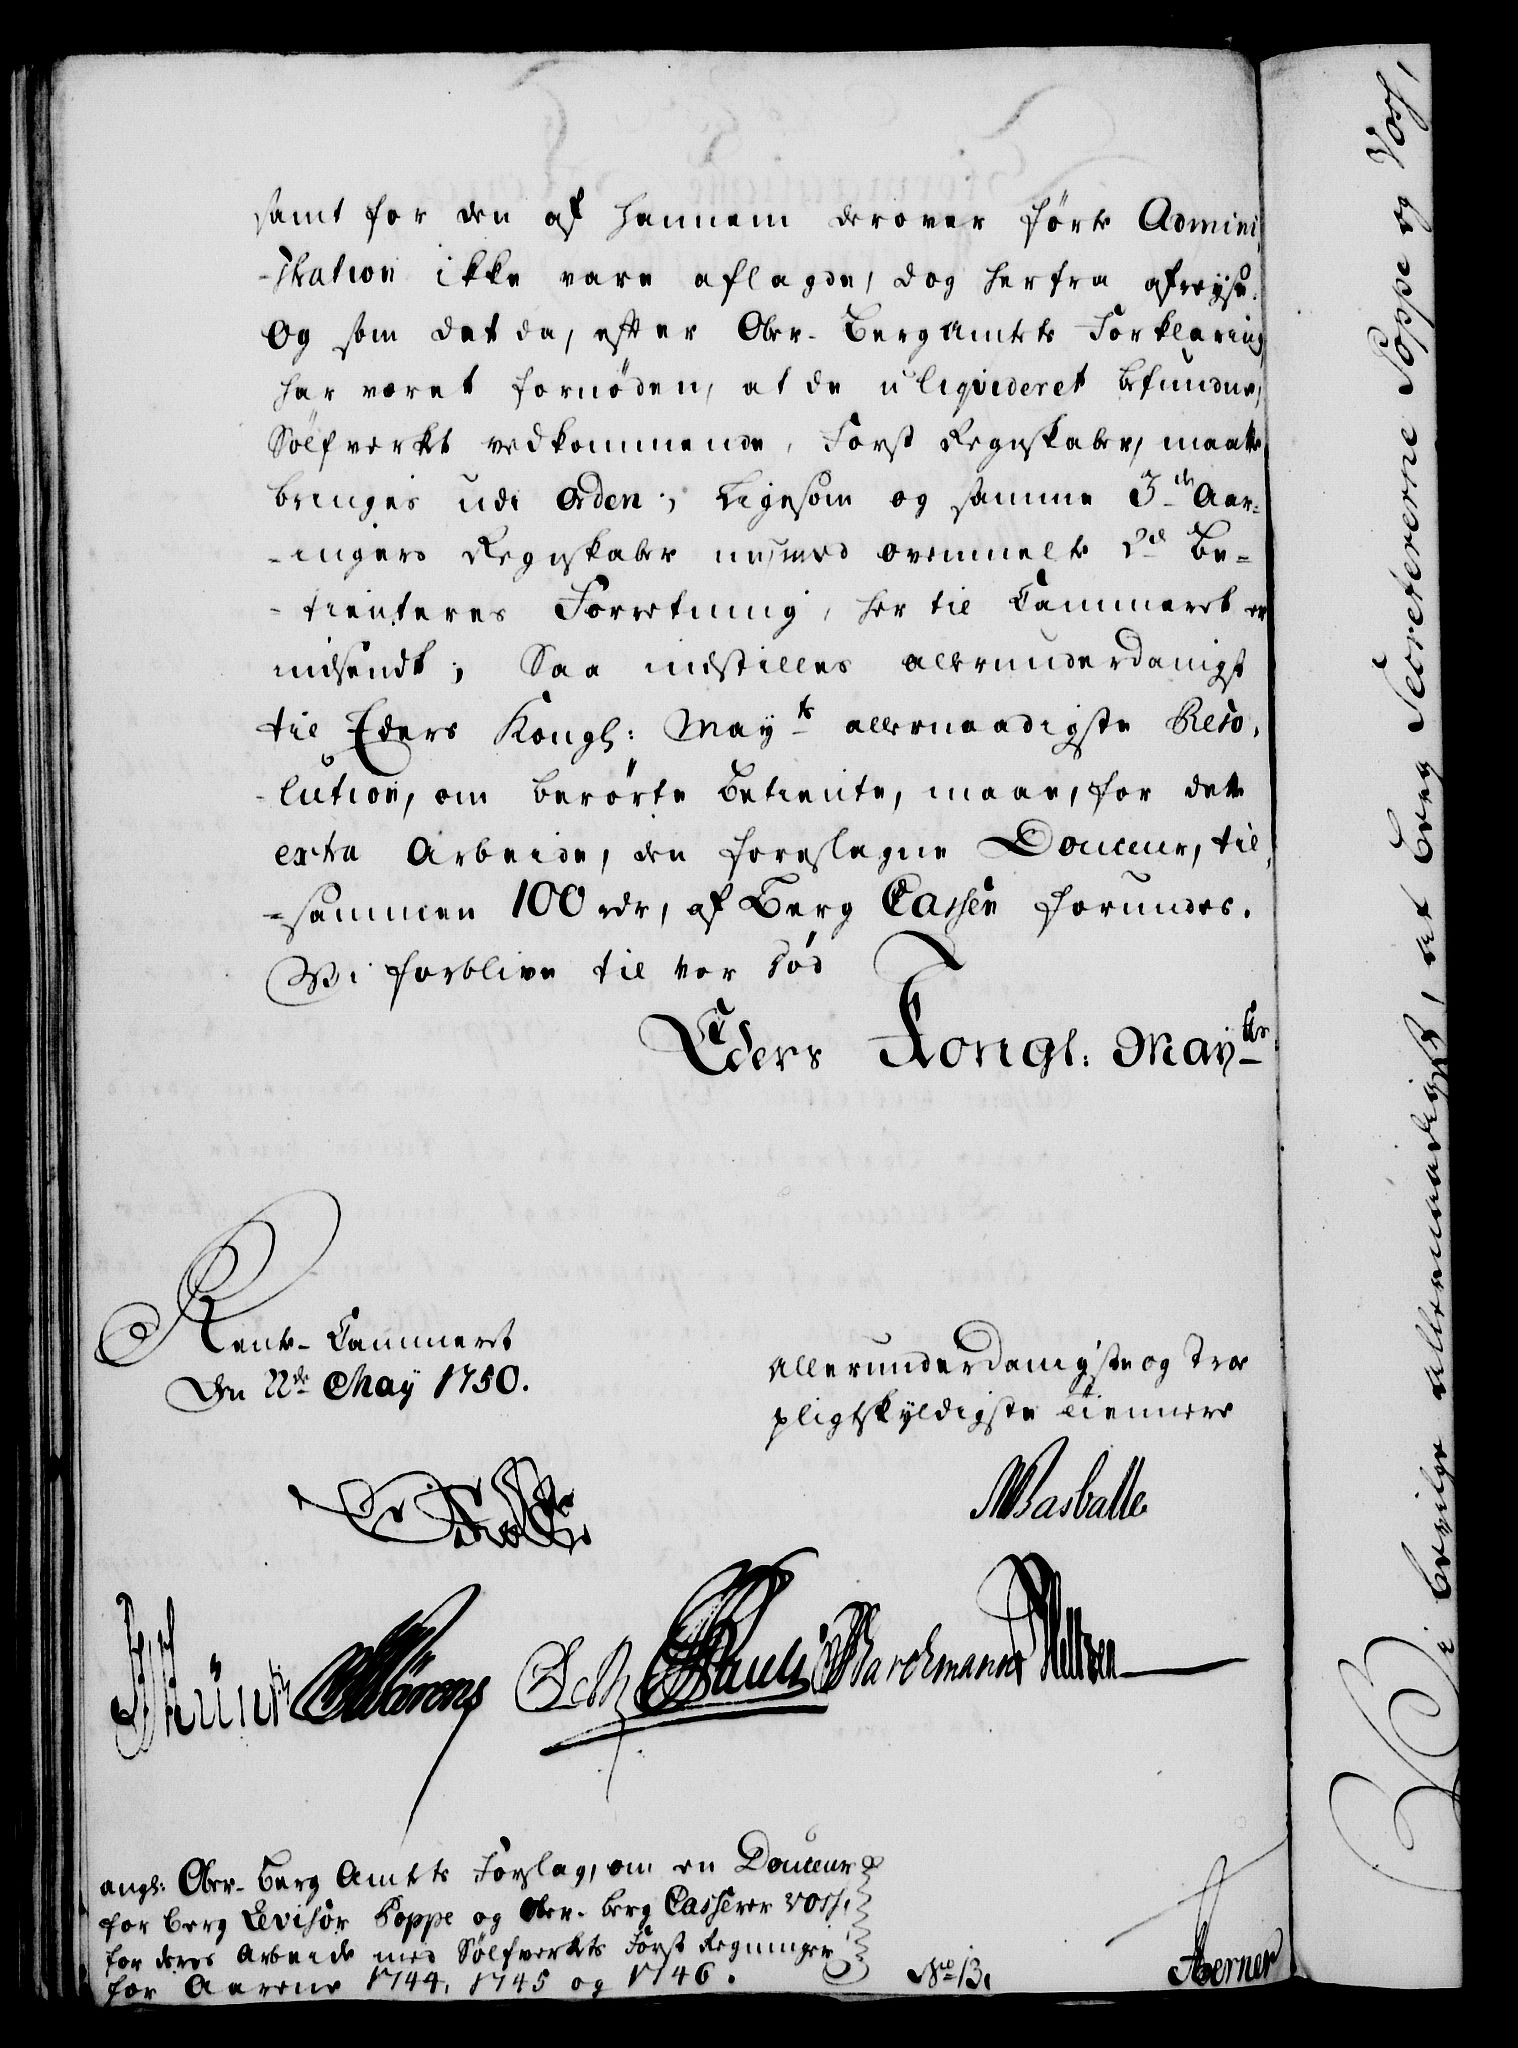 samt for den af hannem derover førte Admini,
-stration ikke vare aflagde, dog herfra afreyse.
Og som det da, efter Ober-Berg Amtets Forklaring
har været fornøden, at de u liqvideret befundne,
Sølfverket vedkommende, Forst Regnskaber, maatte
bringes udi Orden; Ligesom og samme 3de Aar-
-ingers Regnskaber nu med ovenmelte 2de Be-
-tienteres Forretning, her til Cammeret er
indsendt; Saa indstilles allerunderdanigst
til Eders Kongl: May.ts allernaadigste Reso,
-lution, om berørte Betiente, maae, for dette
extra Arbeide, den foreslagne Douceur, til,
-sammen 100 rdr, af Berg Cassen forundes.
Wi forblive til vor Død
Eders Kongl: May.ts
Rente-Cammeret
Den 22de May 1750.
Allerunderdanigste og Troe
pligtskyldigste Tiennere
Basballe
angl: Ober-Berg Amtets Forslag, om en Douceur
for Berg Revisor Poppe og Ober-Berg Casserer Voss,
for deres Arbeide med Sølfverkets Forst Regninger
for Aarene 1744, 1745 og 1746.
No 13.
Aerner
Wi bevilge allernaadigst, at Berg Secreterne Poppe og Voss,